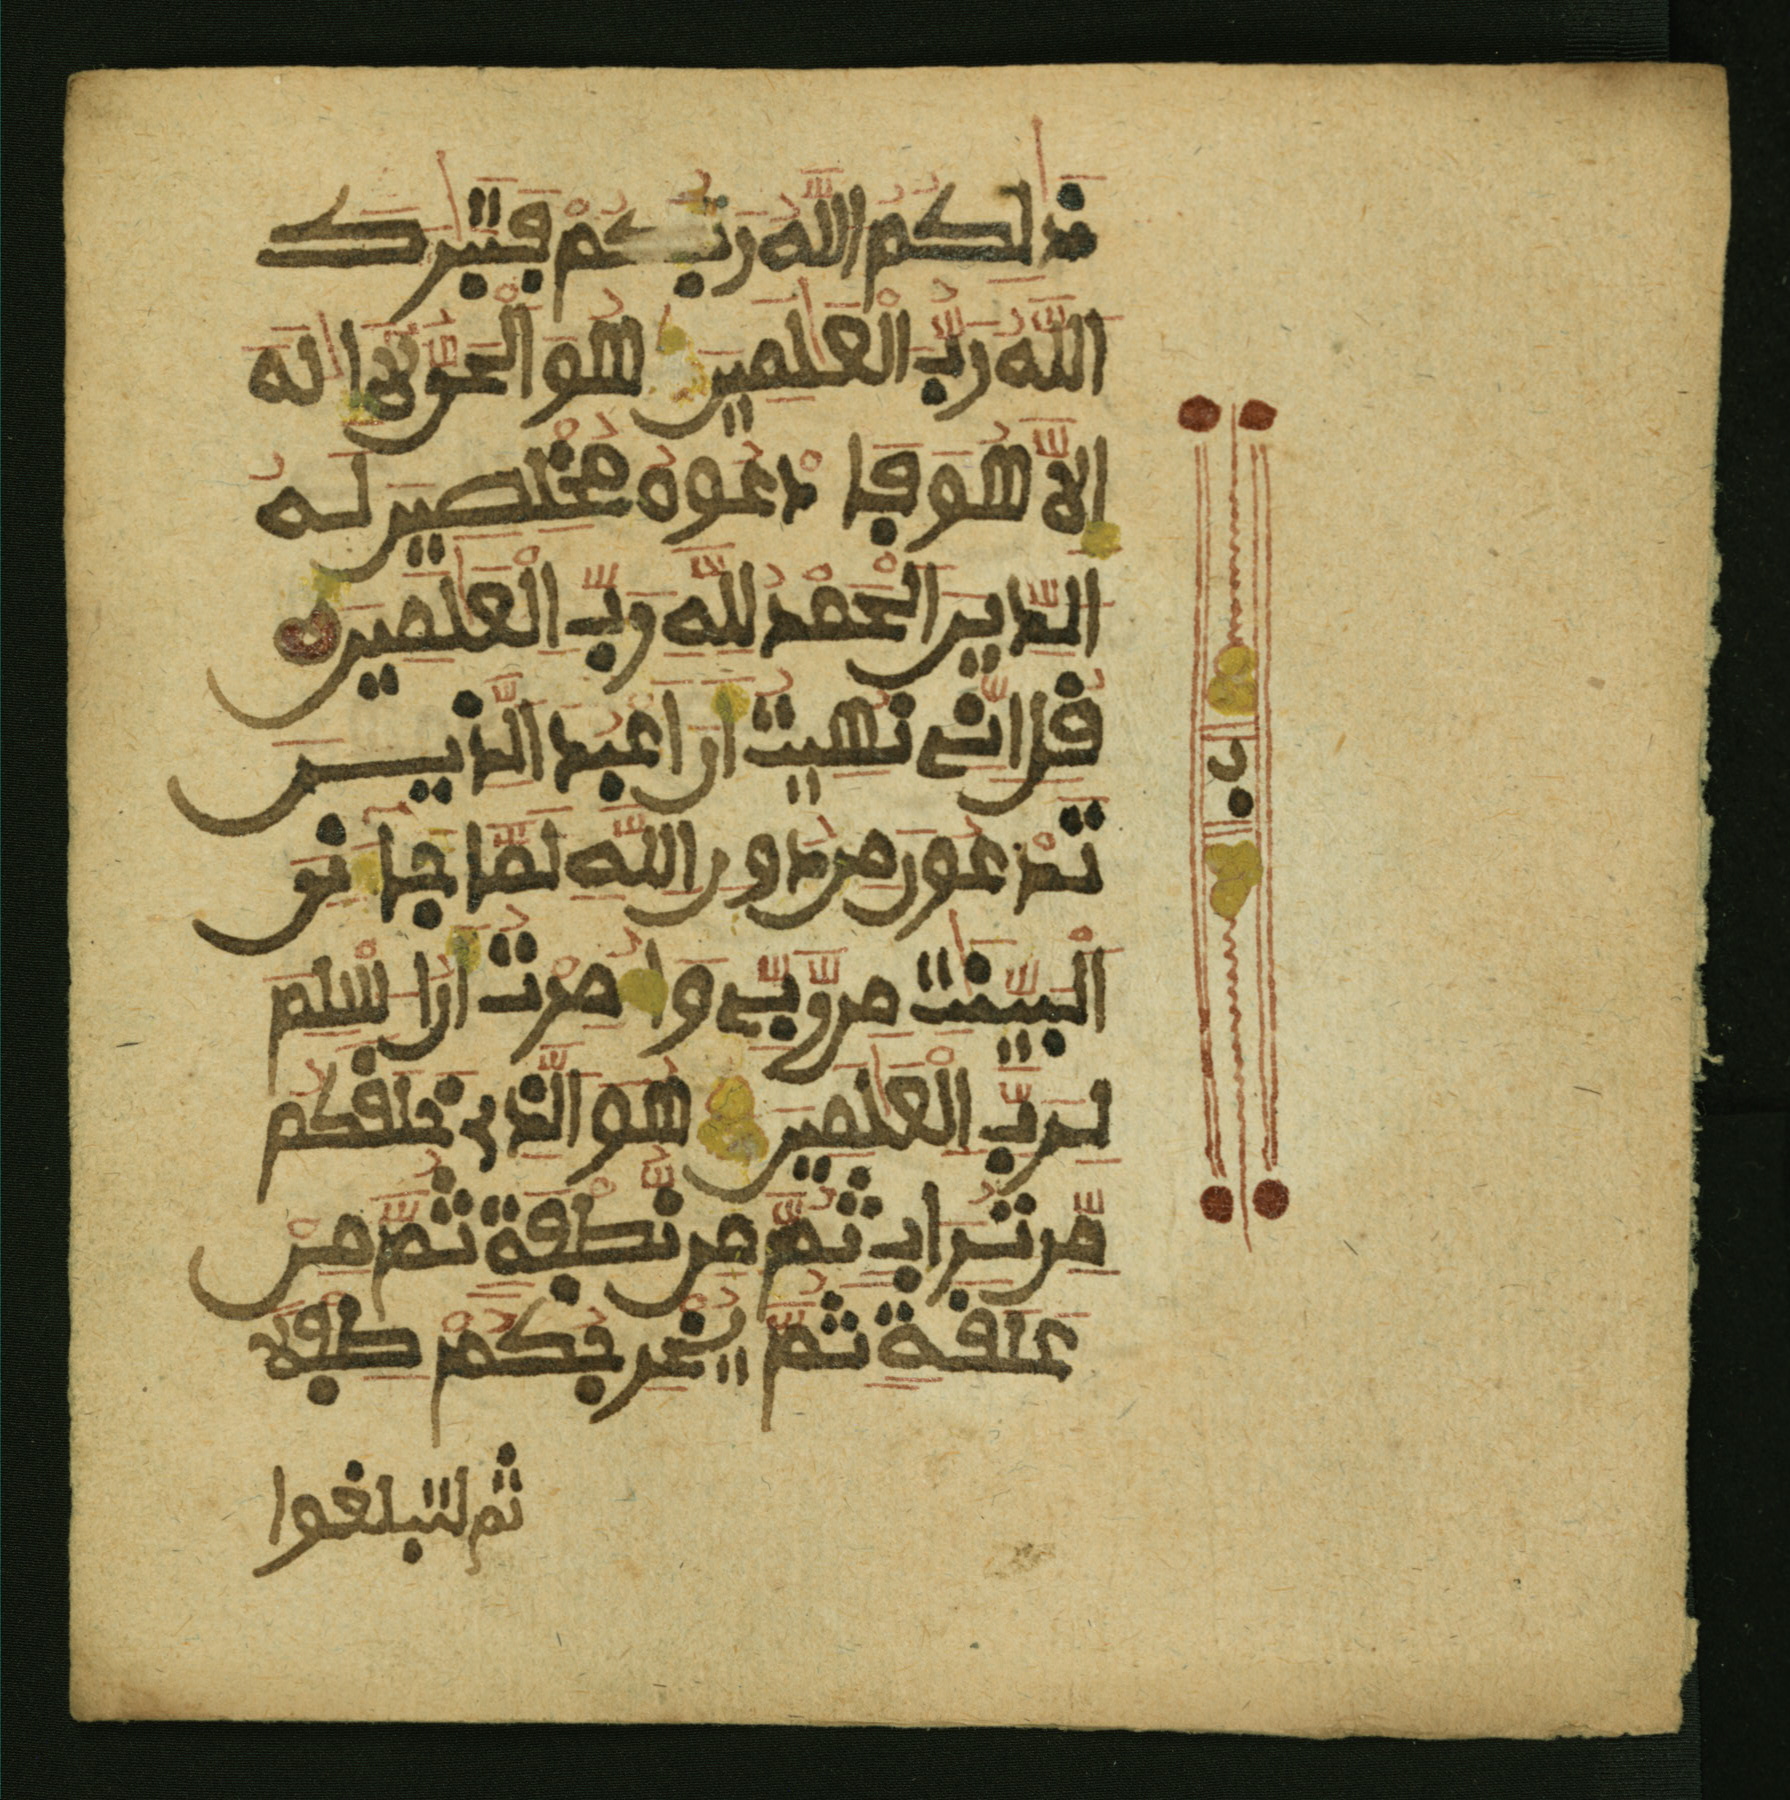 ذلكم الله ربكم فتبرك
الله رب العلمين هو الحي لا اله
الا هو فادعوه مخلصين له
الدين الحمد لله رب العلمين
قل اني نهيت ان اعبد الذين
تدعون من دون الله لما جاءني
البينت من ربي وامرت ان اسلم
لرب العلمين هو الذي خلقكم
من تراب ثم من نطفة ثم من
علقة ثم يخرجكم طفلا
ثم لتبلغوا